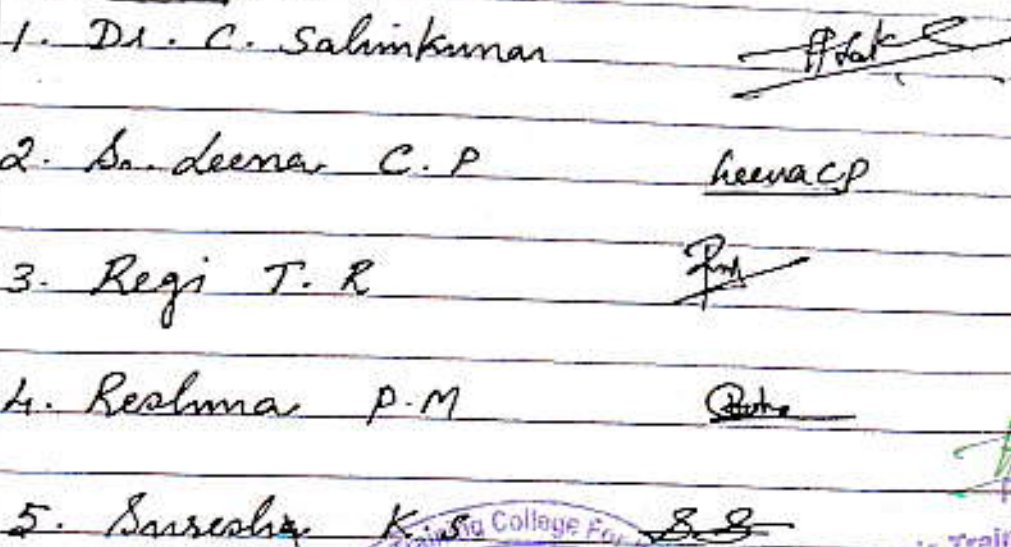 1. Dr. C. Salimkumar
2. Sr. Leena C. P Leena CP
3. Regi T. R
4. Reshma P. M
5. K. S
Training College For
Trai